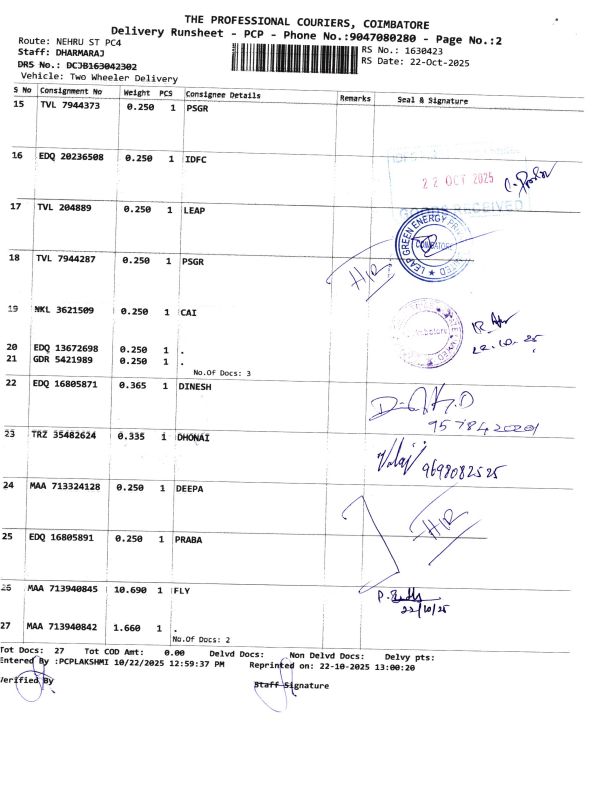 THE PROFESSIONAL COURIERS, COIMBATORE
Delivery Runsheet - PCP - Phone No.:9047080280 - Page No.:2
Route: NEHRU ST PC4
Staff: DHARMARAJ
RS No.: 1630423
DRS No.: DCJB163042302
RS Date: 22-Oct-2025
Vehicle: Two Wheeler Delivery
S No Consignment No Weight PCS Consignee Details Remarks Seal & Signature
15 TVL 7944373 0.250 1 PSGR
16 EDQ 20236508 0.250 1 IDFC
22 OCT 2025
GOODS RECEIVED
17 TVL 204889 0.250 1 LEAP
LEAP GREEN ENERGY PRIV
COIMBATORE
18 TVL 7944287 0.250 1 PSGR
H/R
19 NKL 3621509 0.250 1 CAI
22.10.25
20 EDQ 13672698 0.250 1 .
21 GDR 5421989 0.250 1 .
No.Of Docs: 3
22 EDQ 16805871 0.365 1 DINESH
23 TRZ 35482624 0.335 1 DHONAI
9698082525
24 MAA 713324128 0.250 1 DEEPA
H/R
25 EDQ 16805891 0.250 1 PRABA
26 MAA 713940845 10.690 1 FLY
22/10/25
27 MAA 713940842 1.660 1 .
No.Of Docs: 2
Tot Docs: 27 Tot COD Amt: 0.00 Delvd Docs: Non Delvd Docs: Delvy pts:
Entered By :PCPLAKSHMI 10/22/2025 12:59:37 PM Reprinted on: 22-10-2025 13:00:20
Verified By Staff Signature